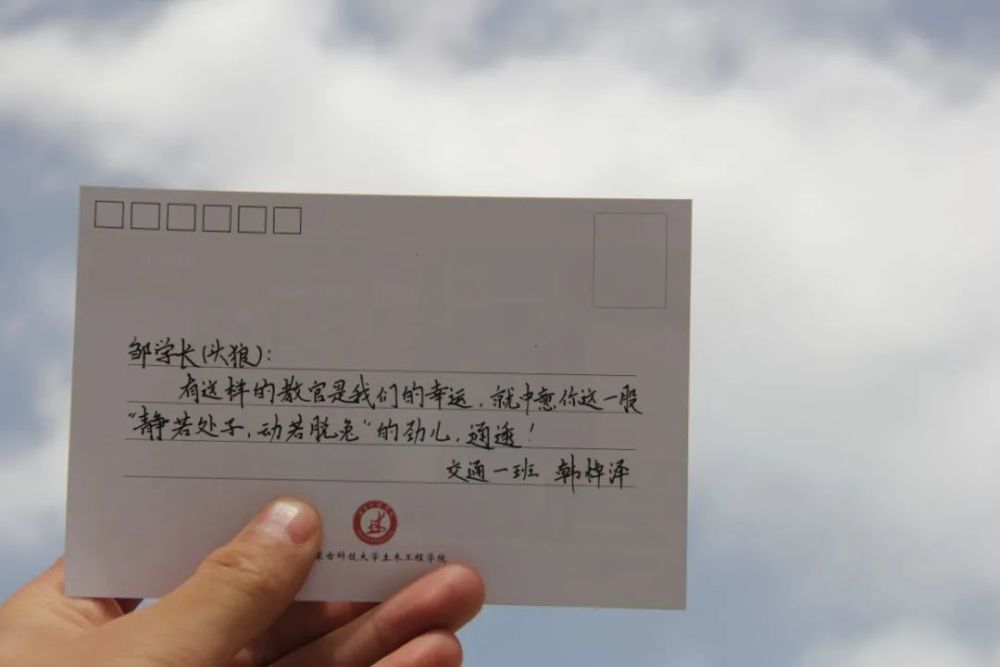 邹学长(头狼):
有这样的教官是我们的幸运,就中意你这一股
“静若处子,动若脱兔”的劲儿,通透!
交通一班 韩棹泽
蒙古科技大学土木工程学院